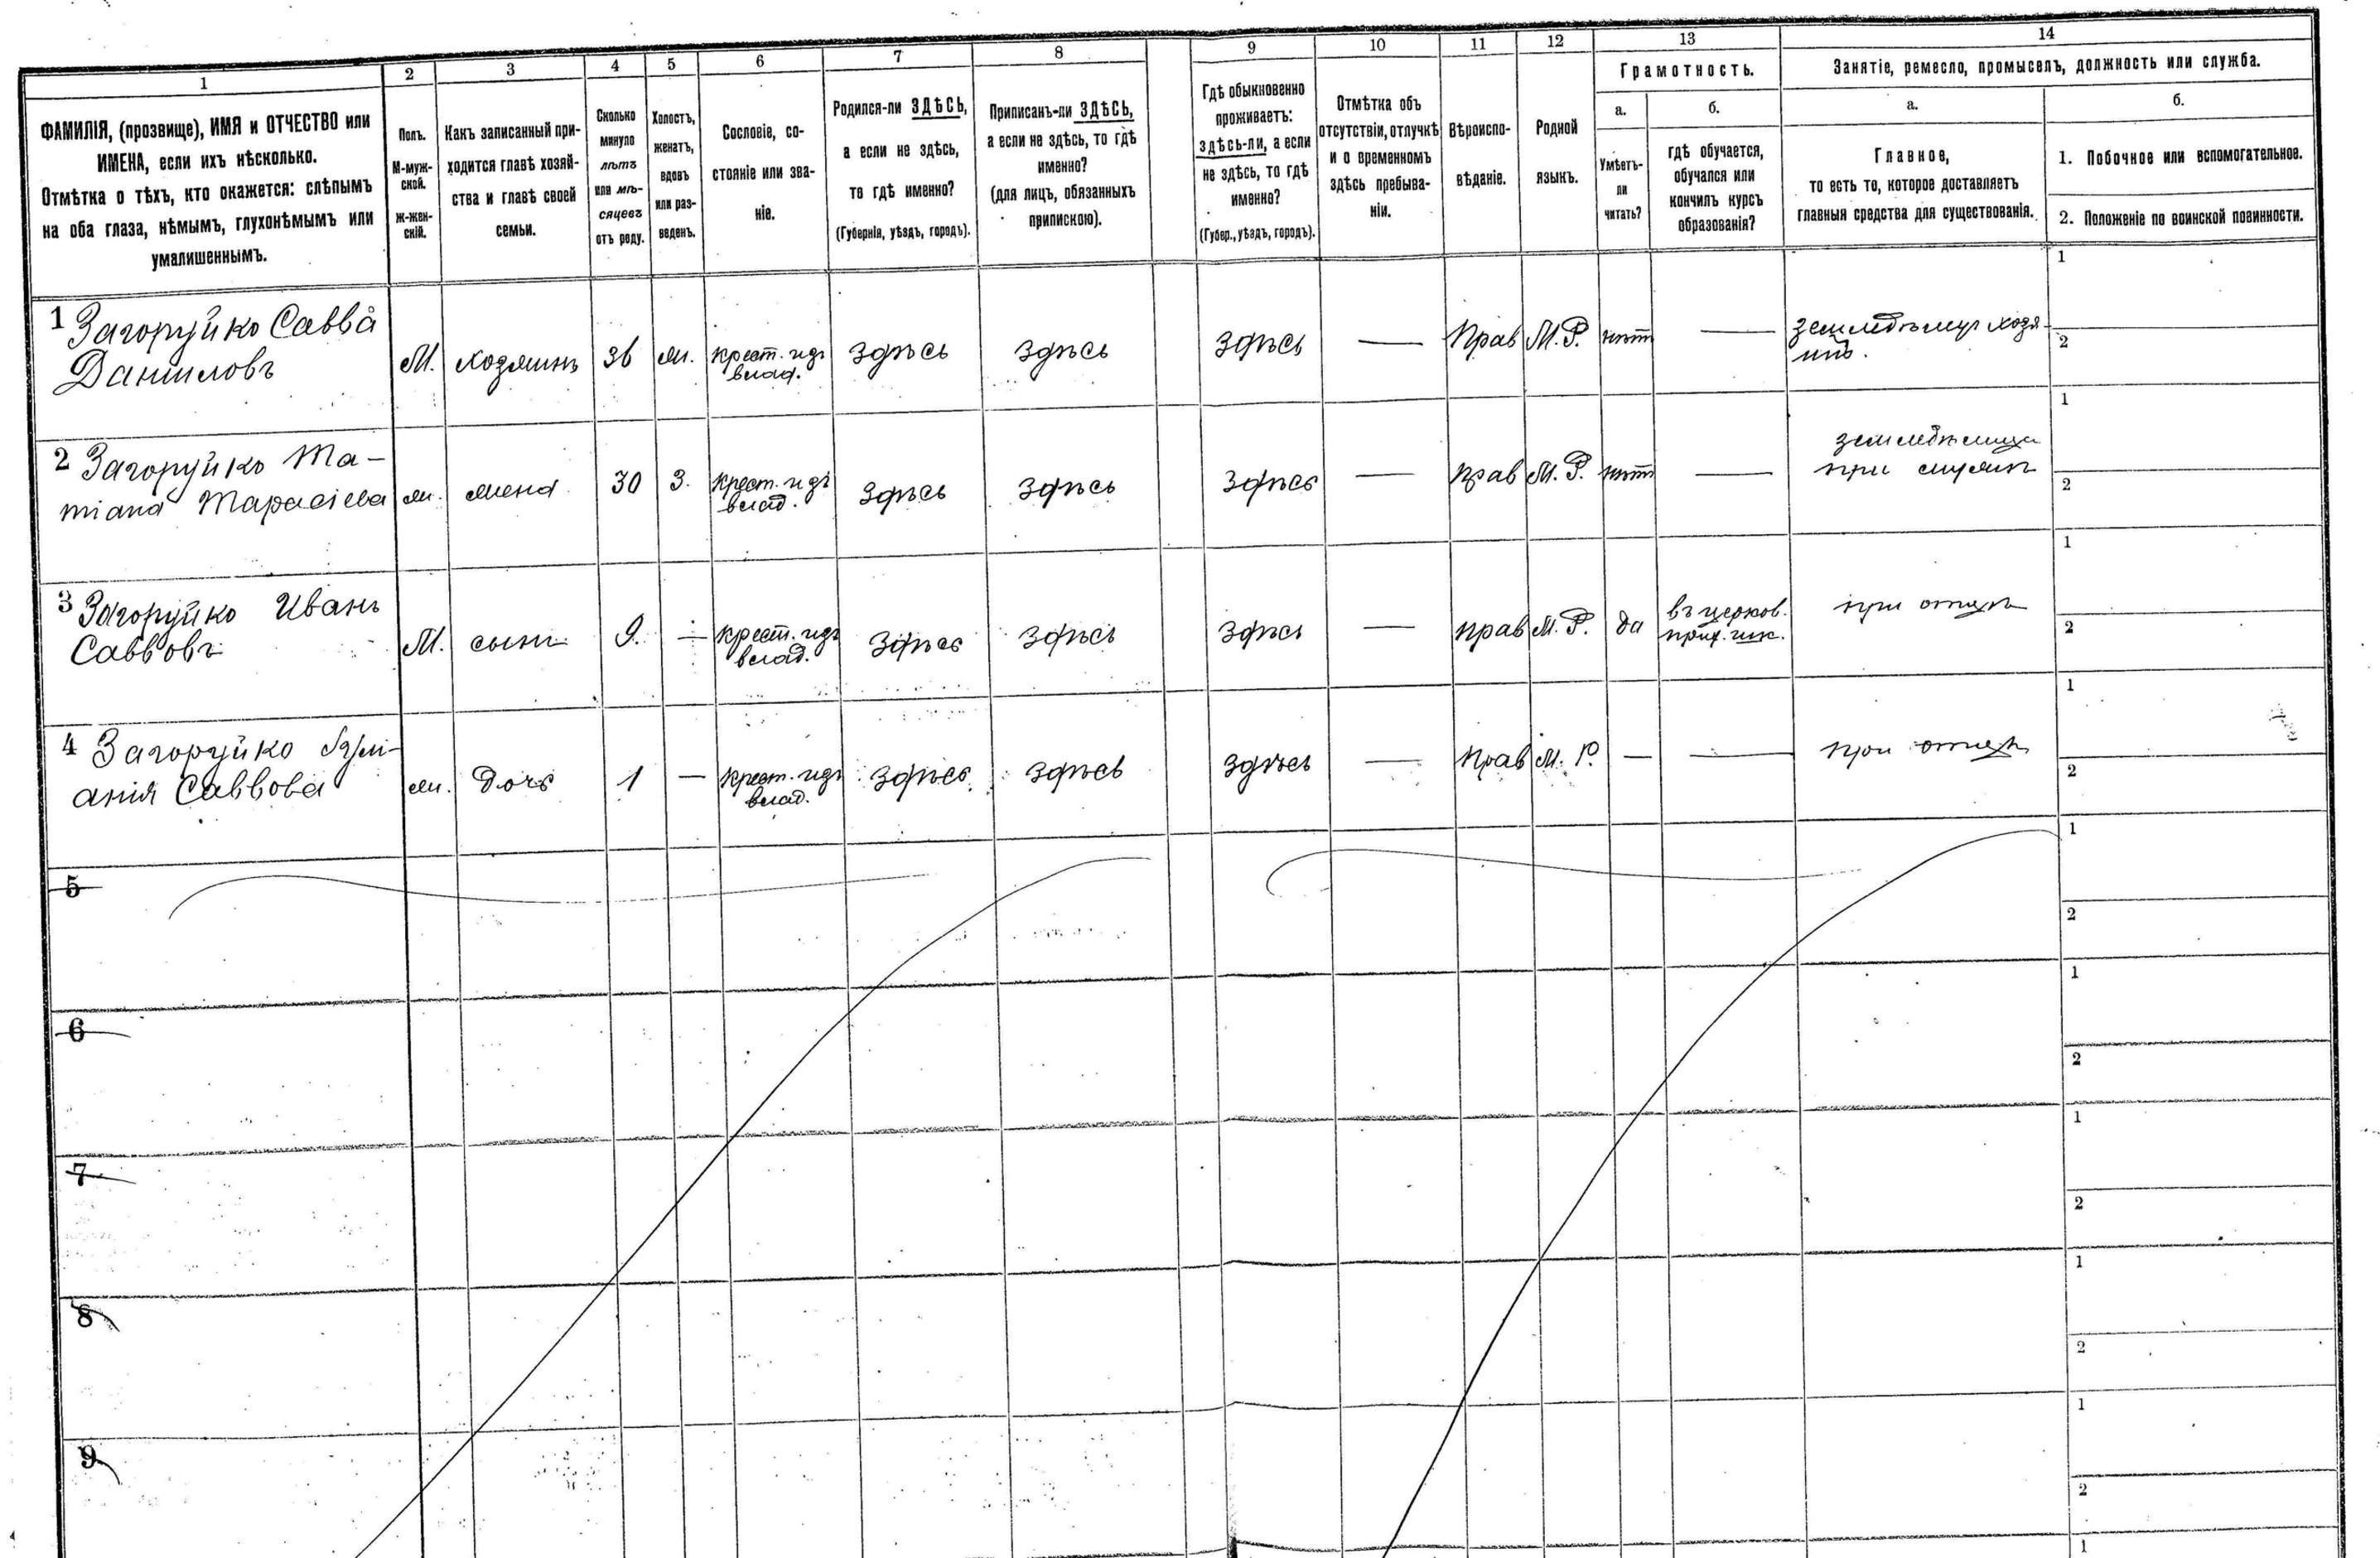 1 2 3 4 5 6 7 8 9 10 11 12 13 14
ФАМИЛІЯ, (прозвище), ИМЯ и ОТЧЕСТВО или
ИМЕНА, если ихъ нѣсколько.
Отмѣтка о тѣхъ, кто окажется: слѣпымъ
на оба глаза, нѣмымъ, глухонѣмымъ или
умалишеннымъ.
Полъ.
М-муж-
ской.
Ж-жен-
скій.
Какъ записанный при-
ходится главѣ хозяй-
ства и главѣ своей
семьи.
Сколько
минуло
лѣтъ
или мѣ-
сяцевъ
отъ роду.
Холостъ,
женатъ,
вдовъ
или раз-
веденъ.
Сословіе, со-
стояніе или зва-
ніе.
Родился-ли ЗДѢСЬ,
а если не здѣсь,
то гдѣ именно?
(Губернія, уѣздъ, городъ).
Приписанъ-ли ЗДѢСЬ,
а если не здѣсь, то гдѣ
именно?
(для лицъ, обязанныхъ
припискою).
Гдѣ обыкновенно
проживаетъ:
здѣсь-ли, а если
не здѣсь, то гдѣ
именно?
(Губер., уѣздъ, городъ).
Отмѣтка объ
отсутствіи, отлучкѣ
и о временномъ
здѣсь пребыва-
ніи.
Вѣроиспо-
вѣданіе.
Родной
языкъ.
Грамотность.
а.
Умѣетъ-
ли
читать?
б.
гдѣ обучается,
обучался или
кончилъ курсъ
образованія?
Занятіе, ремесло, промыселъ, должность или служба.
а.
Главное,
то есть то, которое доставляетъ
главныя средства для существованія.
б.
1. Побочное или вспомогательное.
2. Положеніе по воинской повинности.
1 Загоруйко Савва
Даниловъ
М.
хозяинъ
36
ж.
крест. изъ
влад.
здѣсь
здѣсь
здѣсь
—
Прав
М. Р.
нѣтъ
—
хозя-
инъ.
1
2
2 Загоруйко Та-
тіана Тарасіева
ж.
жена
30
З.
крест. изъ
влад.
здѣсь
здѣсь
здѣсь
—
прав
М. Р.
нѣтъ
—
при мужѣ
1
2
3 Загоруйко Иванъ
Саввовъ
М.
сынъ
9.
—
крест. изъ
влад.
здѣсь
здѣсь
здѣсь
—
прав
М. Р.
да
въ церков.
прих. шк.
при отцѣ
1
2
4 Загоруйко
Саввова
ж.
дочь
1
—
крест. изъ
влад.
здѣсь
здѣсь
здѣсь
—
прав
М. Р.
—
—
при отцѣ
1
2
5
1
2
6
1
2
7
1
2
8
1
2
9
1
2
1